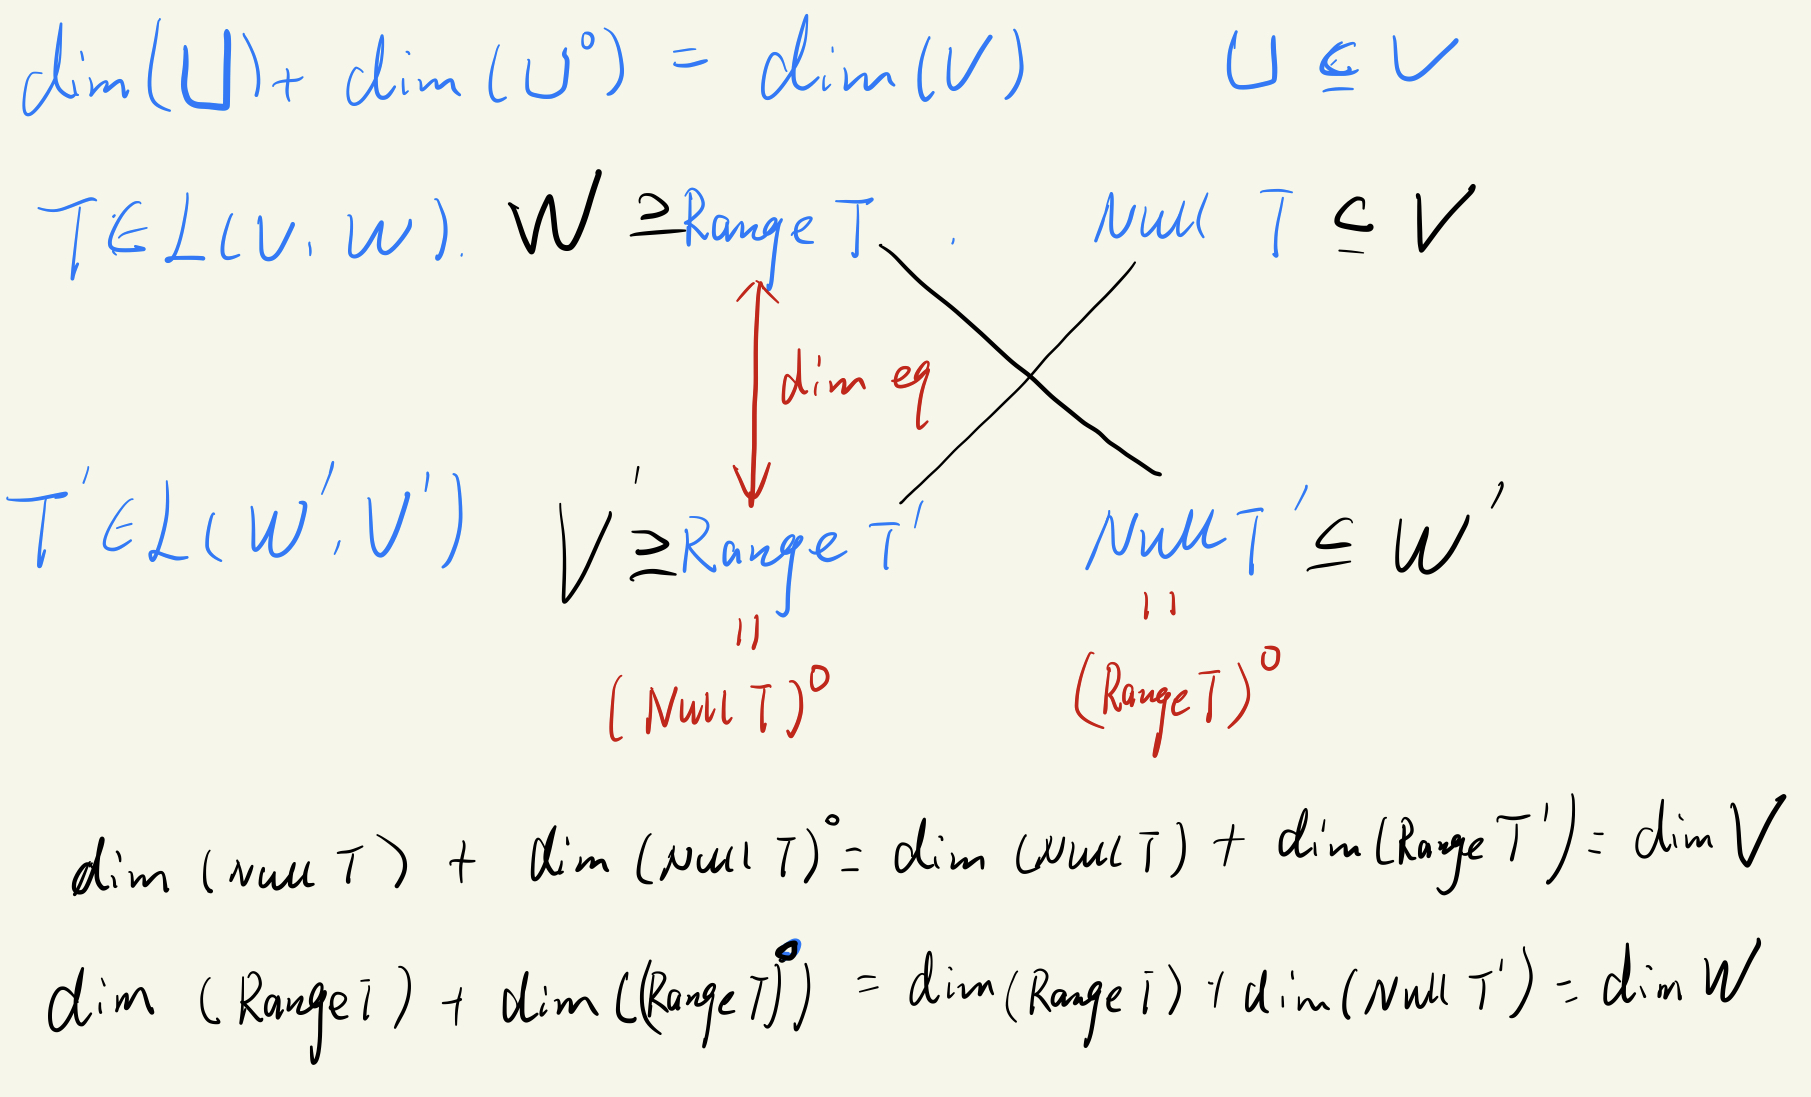 dim(U) + dim(U⁰) = dim(V) U ⊆ V
T ∈ L(V, W). W ⊇ Range T . Null T ⊆ V
dim eq
T' ∈ L(W', V') V' ⊇ Range T' Null T' ⊆ W'
= =
(Null T)⁰ (Range T)⁰
dim (Null T) + dim (Null T)° = dim (Null T) + dim(Range T') = dim V
dim (Range T) + dim((Range T)⁰) = dim(Range T) + dim(Null T') = dim W